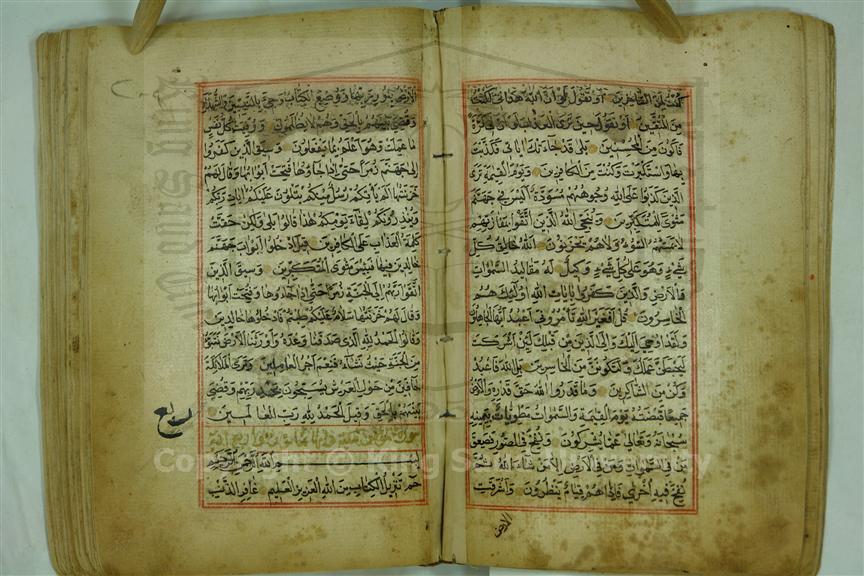 كنت لمن الساخرين او تقول لو ان الله هداني لكنت
من المتقين او تقول حين ترى العذاب لو ان لي كرة
فاكون من المحسنين بلى قد جاءتك اياتي فكذبت
بها واستكبرت وكنت من الكافرين ويوم القيمة ترى
الذين كذبوا على الله وجوههم مسودة اليس في جهنم
مثوى للمتكبرين وينجي الله الذين اتقوا بمفازتهم
لا يمسهم السوء ولا هم يحزنون الله خالق كل
شيء وهو على كل شيء وكيل له مقاليد السموات
والارض والذين كفروا بايات الله اولئك هم
الخاسرون قل افغير الله تأمروني اعبد ايها الجاهلون
ولقد اوحي اليك والى الذين من قبلك لئن اشركت
ليحبطن عملك ولتكونن من الخاسرين بل الله فاعبد
وكن من الشاكرين وما قدروا الله حق قدره والارض
جميعا قبضته يوم القيمة والسموات مطويات بيمينه
سبحانه وتعالى عما يشركون ونفخ في الصور فصعق
من في السموات ومن في الارض الا من شاء الله ثم
نفخ فيه اخرى فاذا هم قيام ينظرون واشرقت
الارض
الارض بنور ربها ووضع الكتاب وجيء بالنبيين والشهداء
وقضي بينهم بالحق وهم لا يظلمون ووفيت كل نفس
ما عملت وهو اعلم بما يفعلون وسيق الذين كفروا
الى جهنم زمرا حتى اذا جاؤها فتحت ابوابها وقال لهم
خزنتها الم يأتكم رسل منكم يتلون عليكم ايات ربكم
وينذرونكم لقاء يومكم هذا قالوا بلى ولكن حقت
كلمة العذاب على الكافرين قيل ادخلوا ابواب جهنم
خالدين فيها فبئس مثوى المتكبرين وسيق الذين
اتقوا ربهم الى الجنة زمرا حتى اذا جاؤها وفتحت ابوابها
وقال لهم خزنتها سلام عليكم طبتم فادخلوها خالدين
وقالوا الحمد لله الذي صدقنا وعده واورثنا الارض نتبوأ
من الجنة حيث نشاء فنعم اجر العاملين وترى الملائكة
حافين من حول العرش يسبحون بحمد ربهم وقضي
بينهم بالحق وقيل الحمد لله رب العالمين
بسم الله الرحمن الرحيم
حم تنزيل الكتاب من الله العزيز العليم غافر الذنب
Copyright © King Saud University